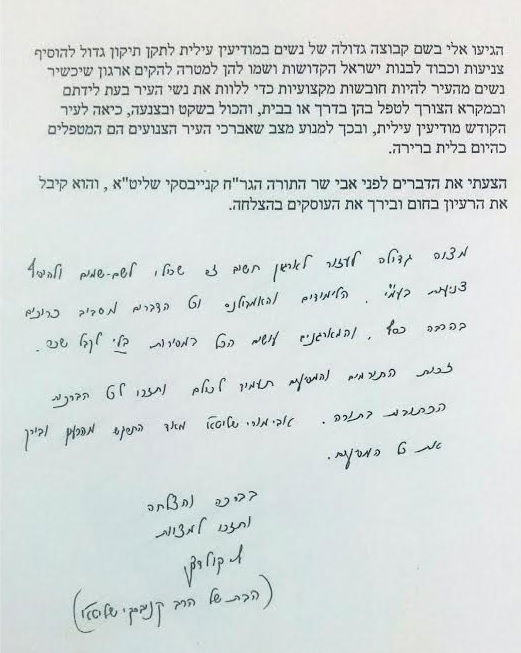 הגיעו אלי בשם קבוצה גדולה של נשים במודיעין עילית לתקן תיקון גדול להוסיף
צניעות וכבוד לבנות ישראל הקדושות ושמו להן למטרה להקים ארגון שיכשיר
נשים מהעיר להיות חובשות מקצועיות כדי ללוות את נשי העיר בעת לידתם
ובמקרא הצורך לטפל בהן בדרך או בבית, והכול בשקט ובצנעה, כיאה לעיר
הקודש מודיעין עילית, ובכך למנוע מצב שאברכי העיר הצנועים הם המטפלים
כהיום בלית ברירה.
הצעתי את הדברים לפני אבי שר התורה הגר"ח קנייבסקי שליט"א , והוא קיבל
את הרעיון בחום ובירך את העוסקים בהצלחה.
מצוה גדולה לעזור לארגון חשוב זה שכולו לשם-שמים ולהוסיף
צניעות בעמי. הלימודים והאמבולנס וכל הדברים מסביב כרוכים
בהרבה כסף, והמארגנים עושים הכל במסירות בלי לקבל שכר.
זכות התורמים והמסייעים תעמוד לכולם ותזכו לכל הברכות
הכתובות בתורה. אבי מורי שליט"א מאוד התפעל מהרעיון ובירך
את כל המסייעים.
בברכה והצלחה
ותזכו למצוות
קולדצקי
(הבת של הרב קנייבסקי שליט"א)